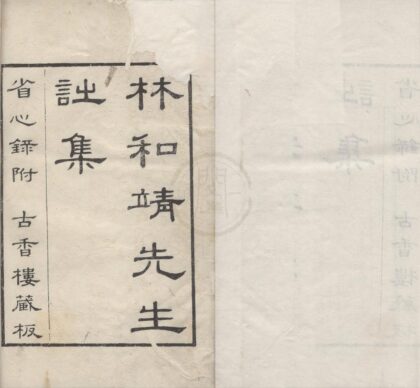 林和靖先生
詩集
省心錄附　古香樓藏板